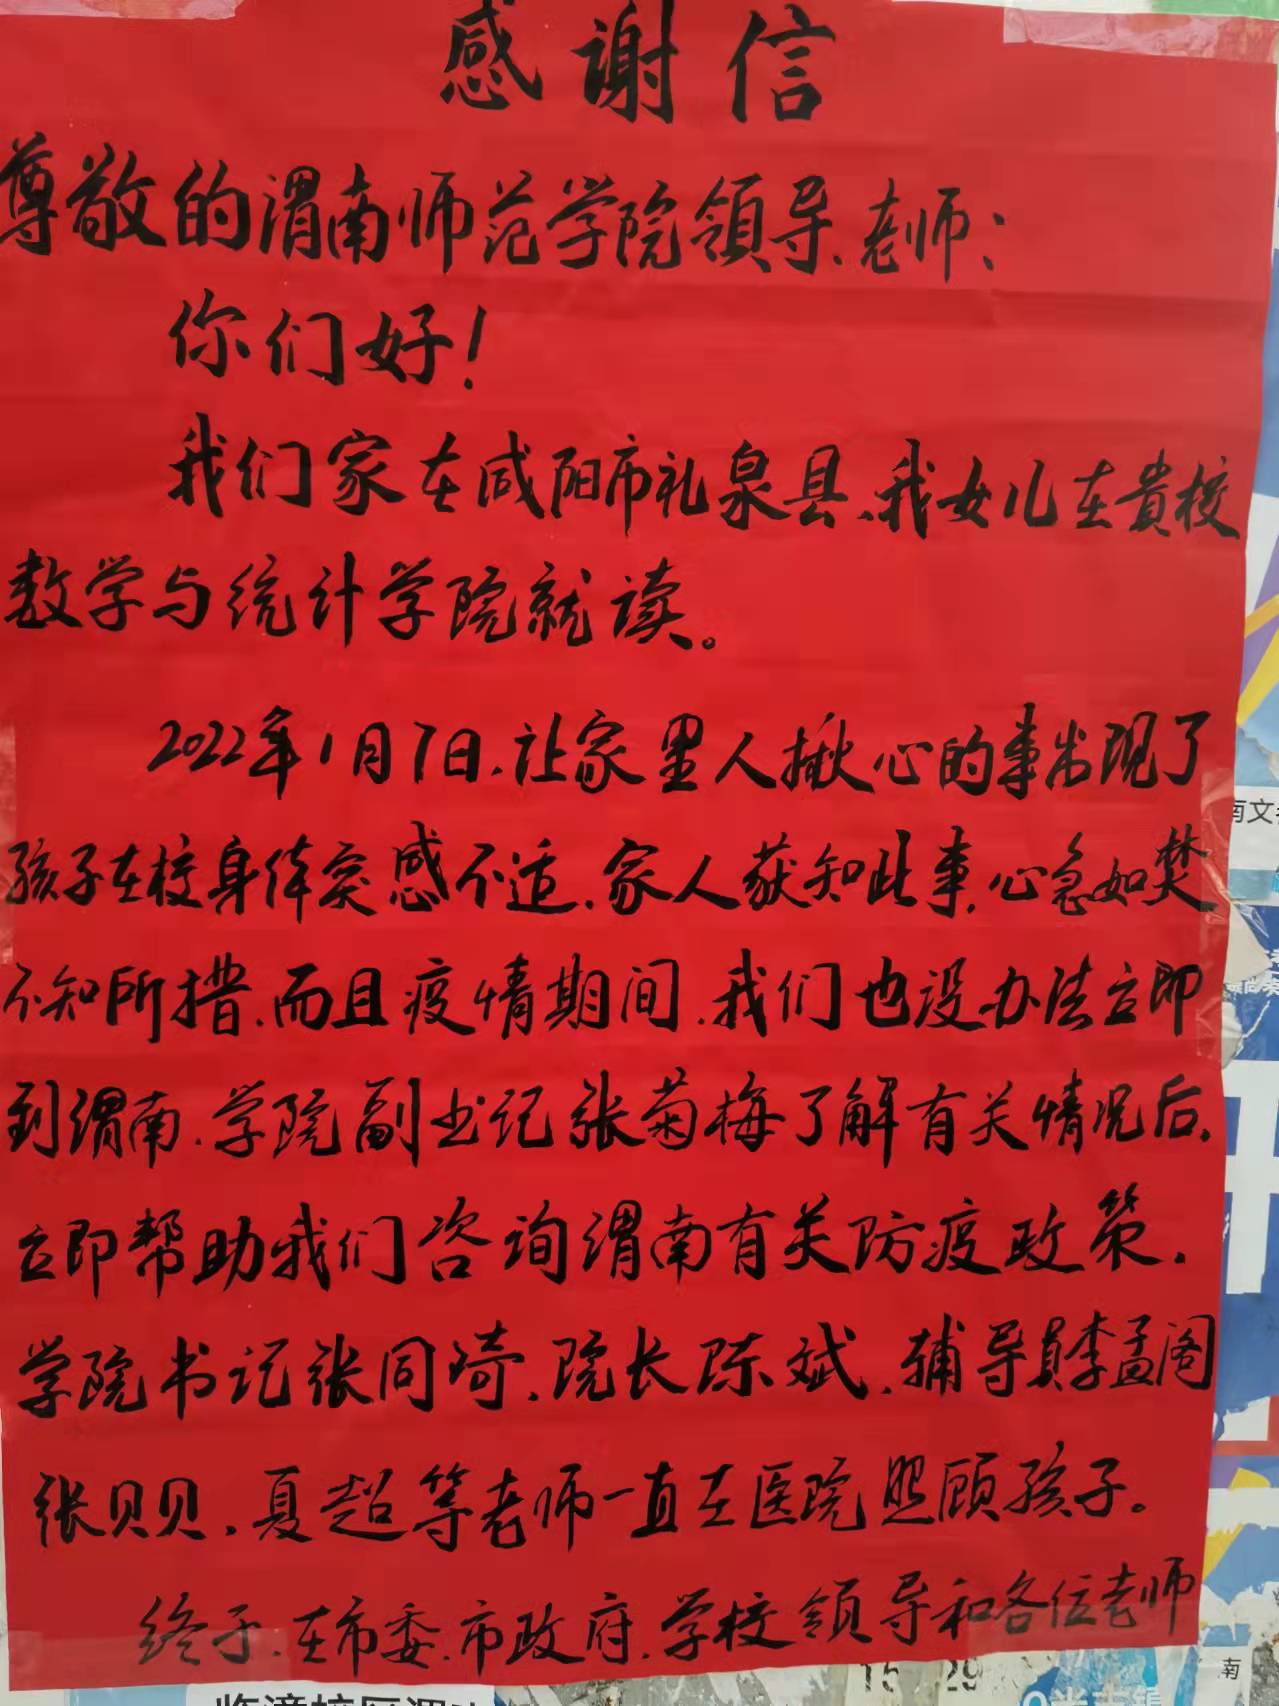 感谢信
尊敬的渭南师范学院领导、老师：
你们好！
我们家在咸阳市礼泉县、我女儿在贵校
数学与统计学院就读。
2022年1月7日、让家里人揪心的事出现了
孩子在校身体突感不适、家人获知此事、心急如焚
不知所措、而且疫情期间、我们也没办法立即
到渭南、学院副书记张菊梅了解有关情况后、
立即帮助我们咨询渭南有关防疫政策、
学院书记张同琦、院长陈斌、辅导员李孟阁
张贝贝、夏超等老师一直在医院照顾孩子。
终于、在市委、市政府、学校领导和各位老师
南文
15 29
南